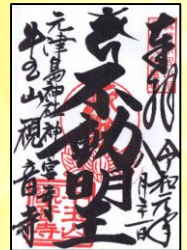 奉拝 令和元年
不動明王
元津島神社神宮寺
牛玉山観音寺